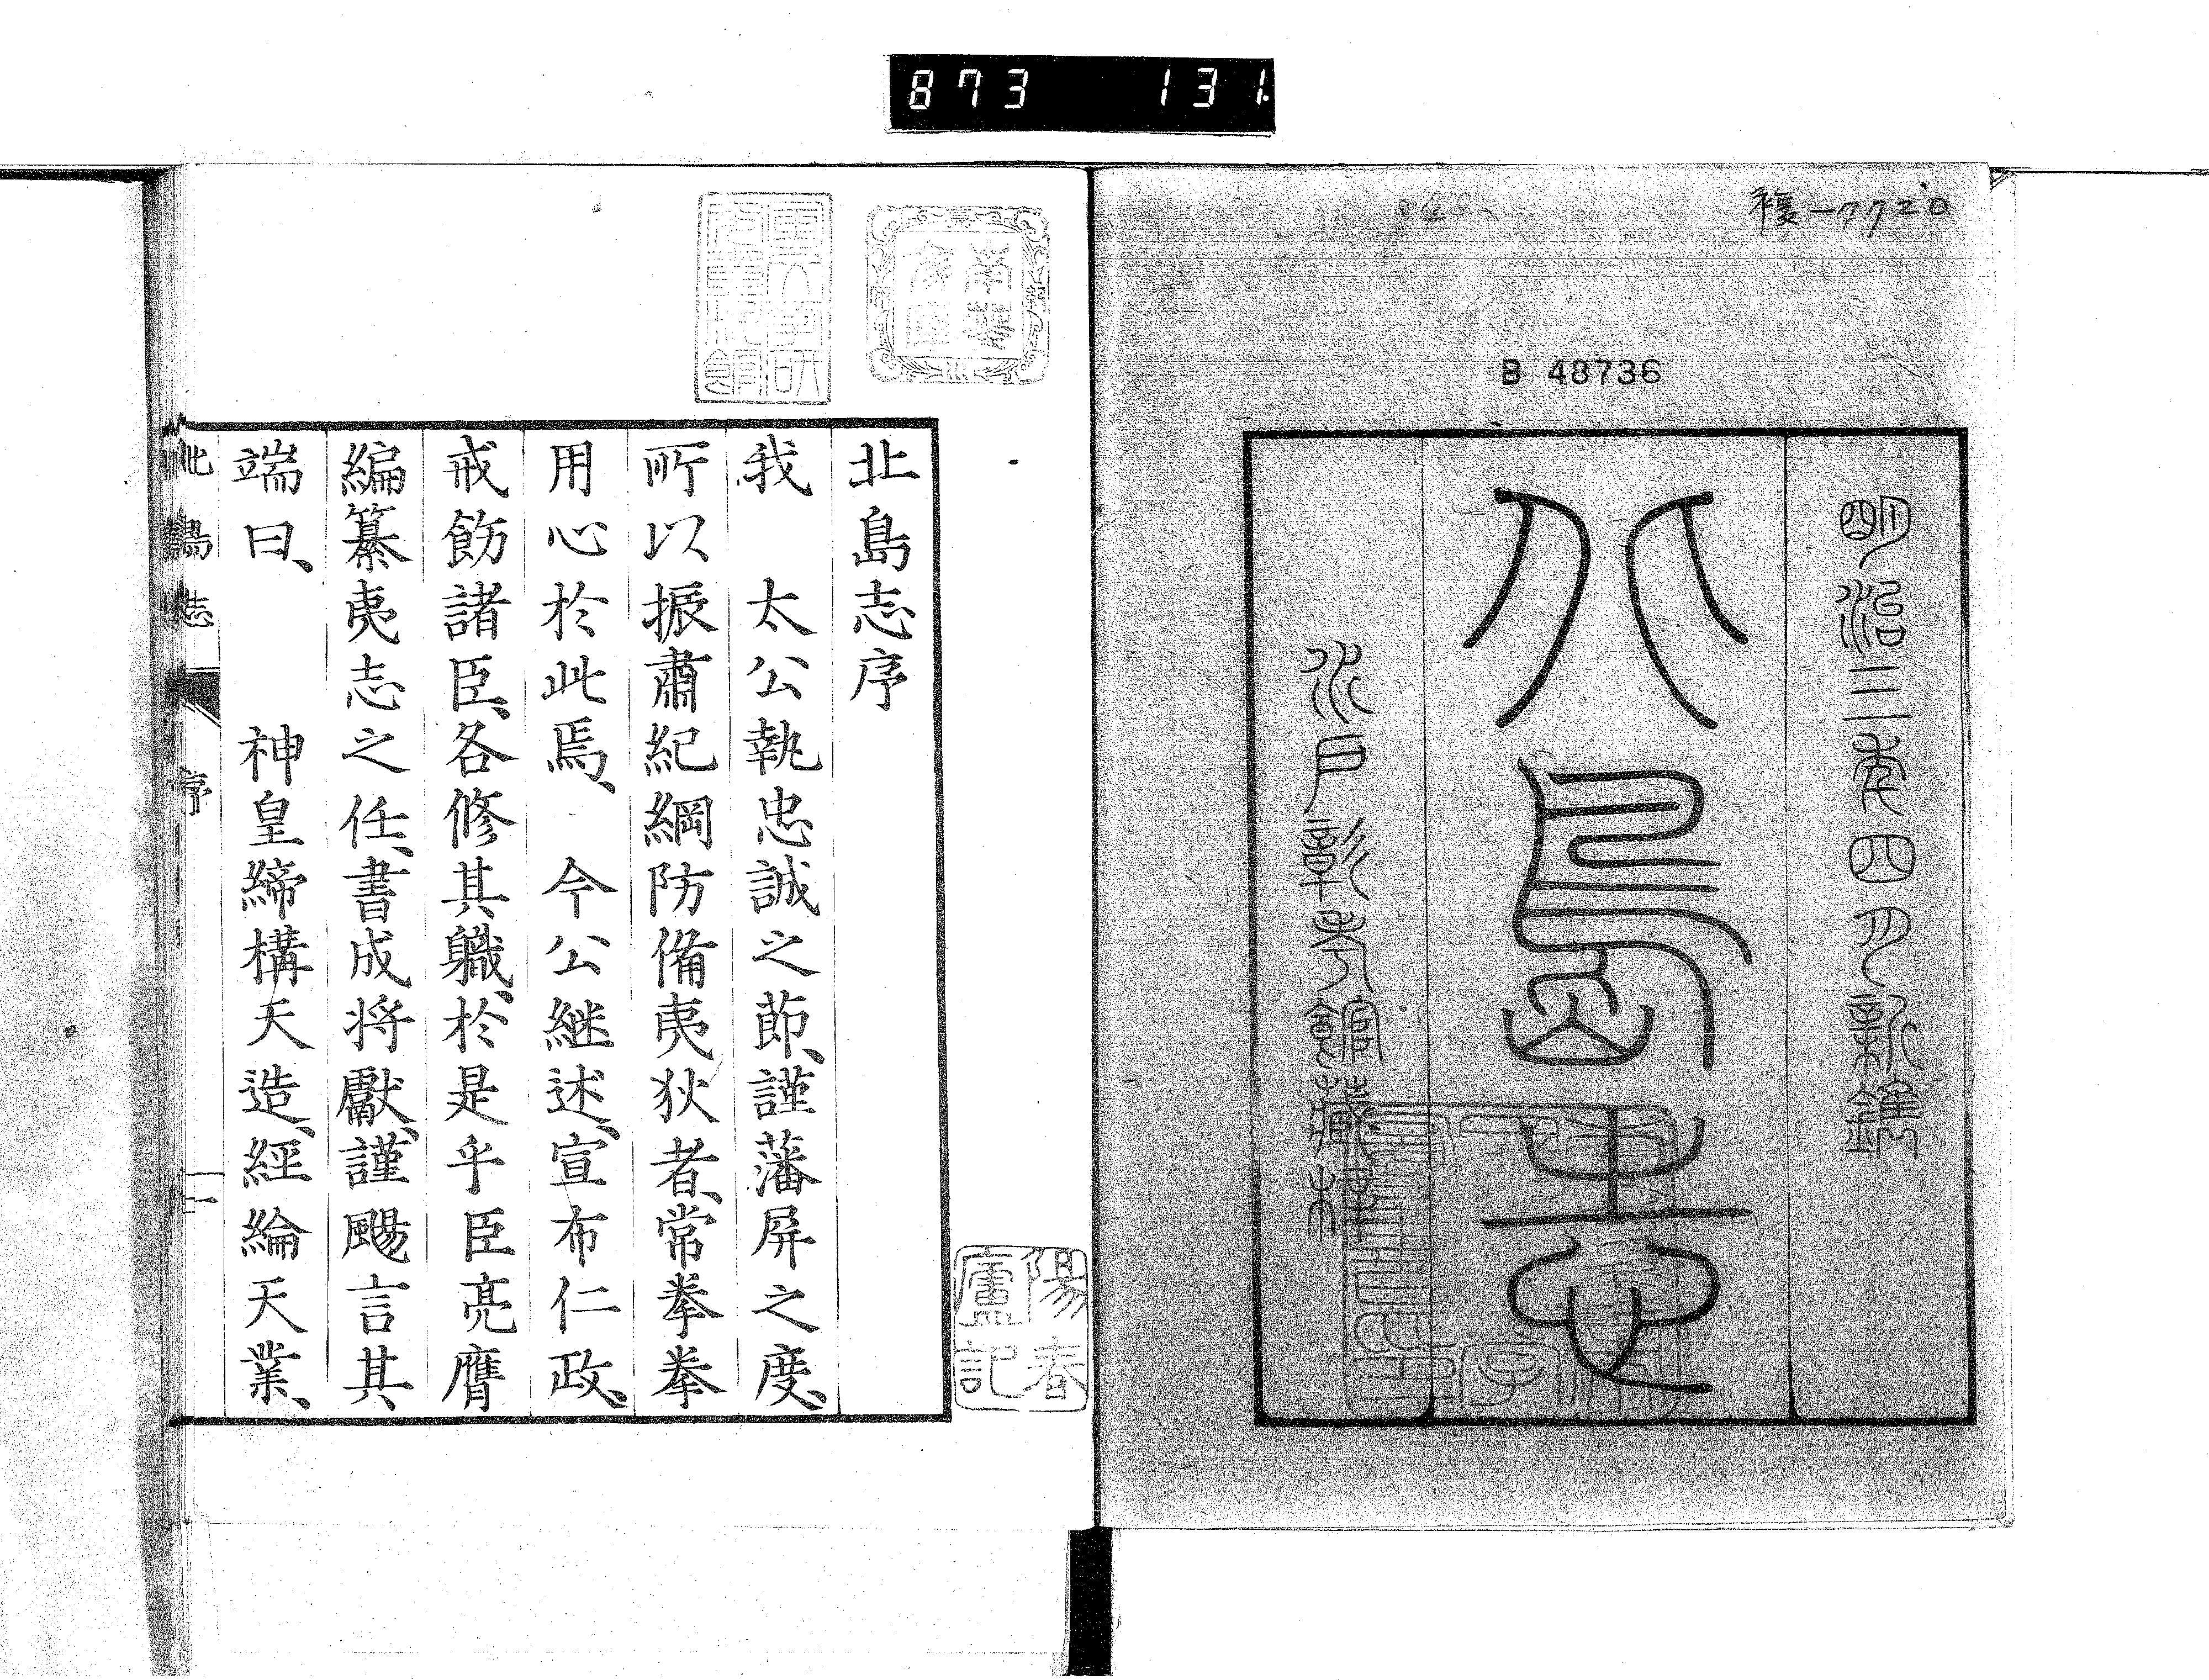 873 131
複一7720
B 48736
明治三年四月新鐫
北島志
水戶彰考館藏本
陽春
廬記
北島志序
我 太公執忠誠之節、謹藩屏之度、
所以振肅紀綱防備夷狄者、常拳拳
用心於此焉、 今公継述、宣布仁政、
戒飭諸臣、各修其職、於是乎臣亮膺
編纂夷志之任、書成将獻、謹颺言其
端曰、 神皇締構天造、經綸天業、
北島志 序 一